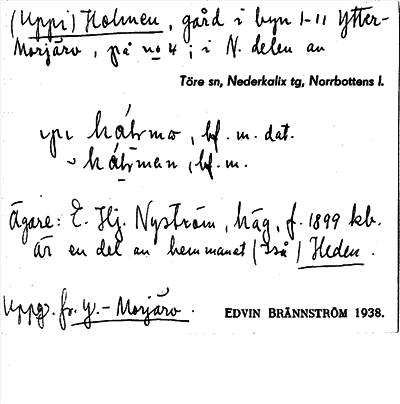 (Uppi) Holmen, gård i byn 1-11 Ytter-
Morjärv, på no 4; i N. delen av
Töre sn, Nederkalix tg, Norrbottens l.
upi hålmo, bf. m. dat.
~ hålman, bf. m.
Ägare: E. Hj. Nyström, häg, f. 1899 kb.
Är en del av hemmanet (två) Heden.
Uppg. fr. Y.-Morjärv.
EDVIN BRÄNNSTRÖM 1938.